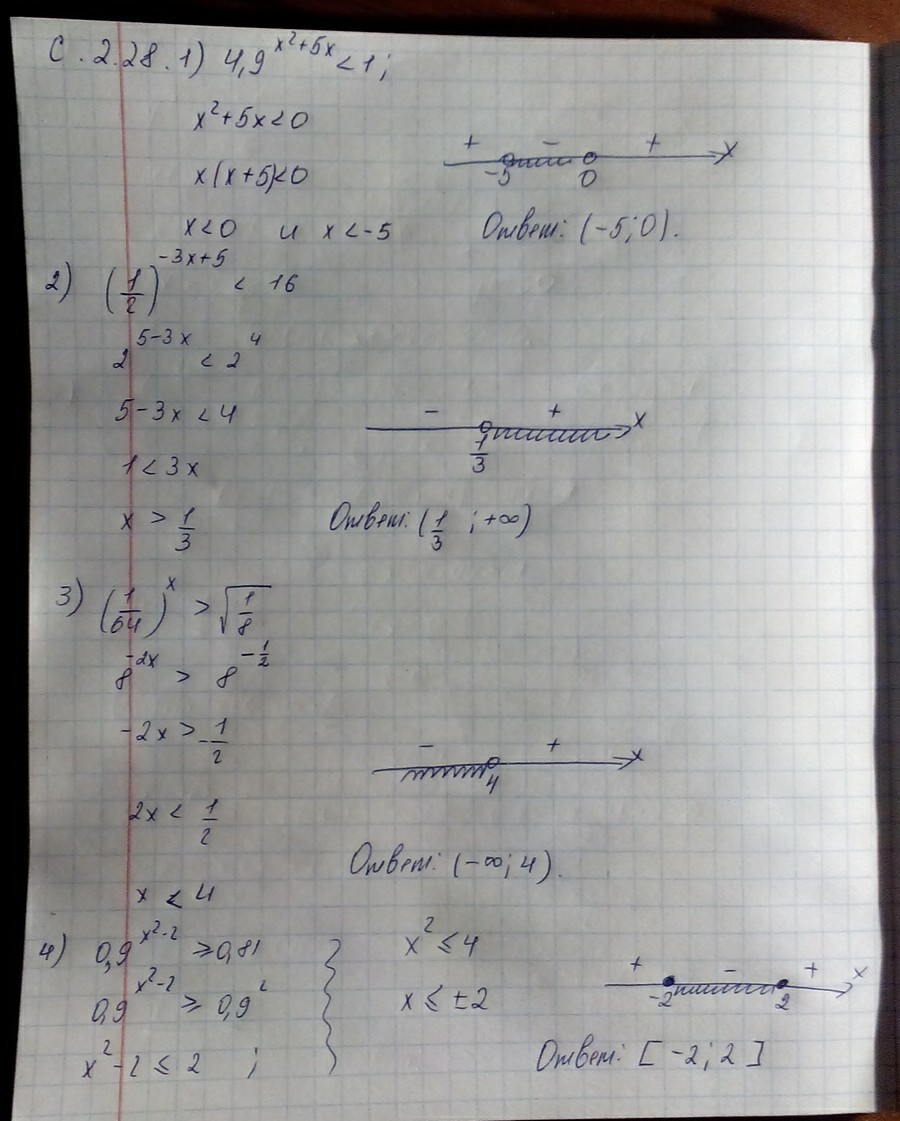 С.2.28.1) 4,9^(x²+5x) < 1;
x²+5x<0
x(x+5)<0
x<0 и x<-5
+ - + x
-5 0
Ответ: (-5;0).
2) (1/2)^(-3x+5) < 16
2^(5-3x) < 2^4
5-3x<4
1<3x
x > 1/3
- + x
1/3
Ответ: (1/3 ; +∞)
3) (1/64)^x > √(1/8)
8^(-2x) > 8^(-1/2)
-2x > -1/2
2x < 1/2
x < 4
- + x
4
Ответ: (-∞; 4).
4) 0,9^(x²-2) ≥ 0,81
0,9^(x²-2) ≥ 0,9²
x²-2 ≤ 2 ;
x² ≤ 4
x ≤ ±2
+ - + x
-2 2
Ответ: [-2; 2]